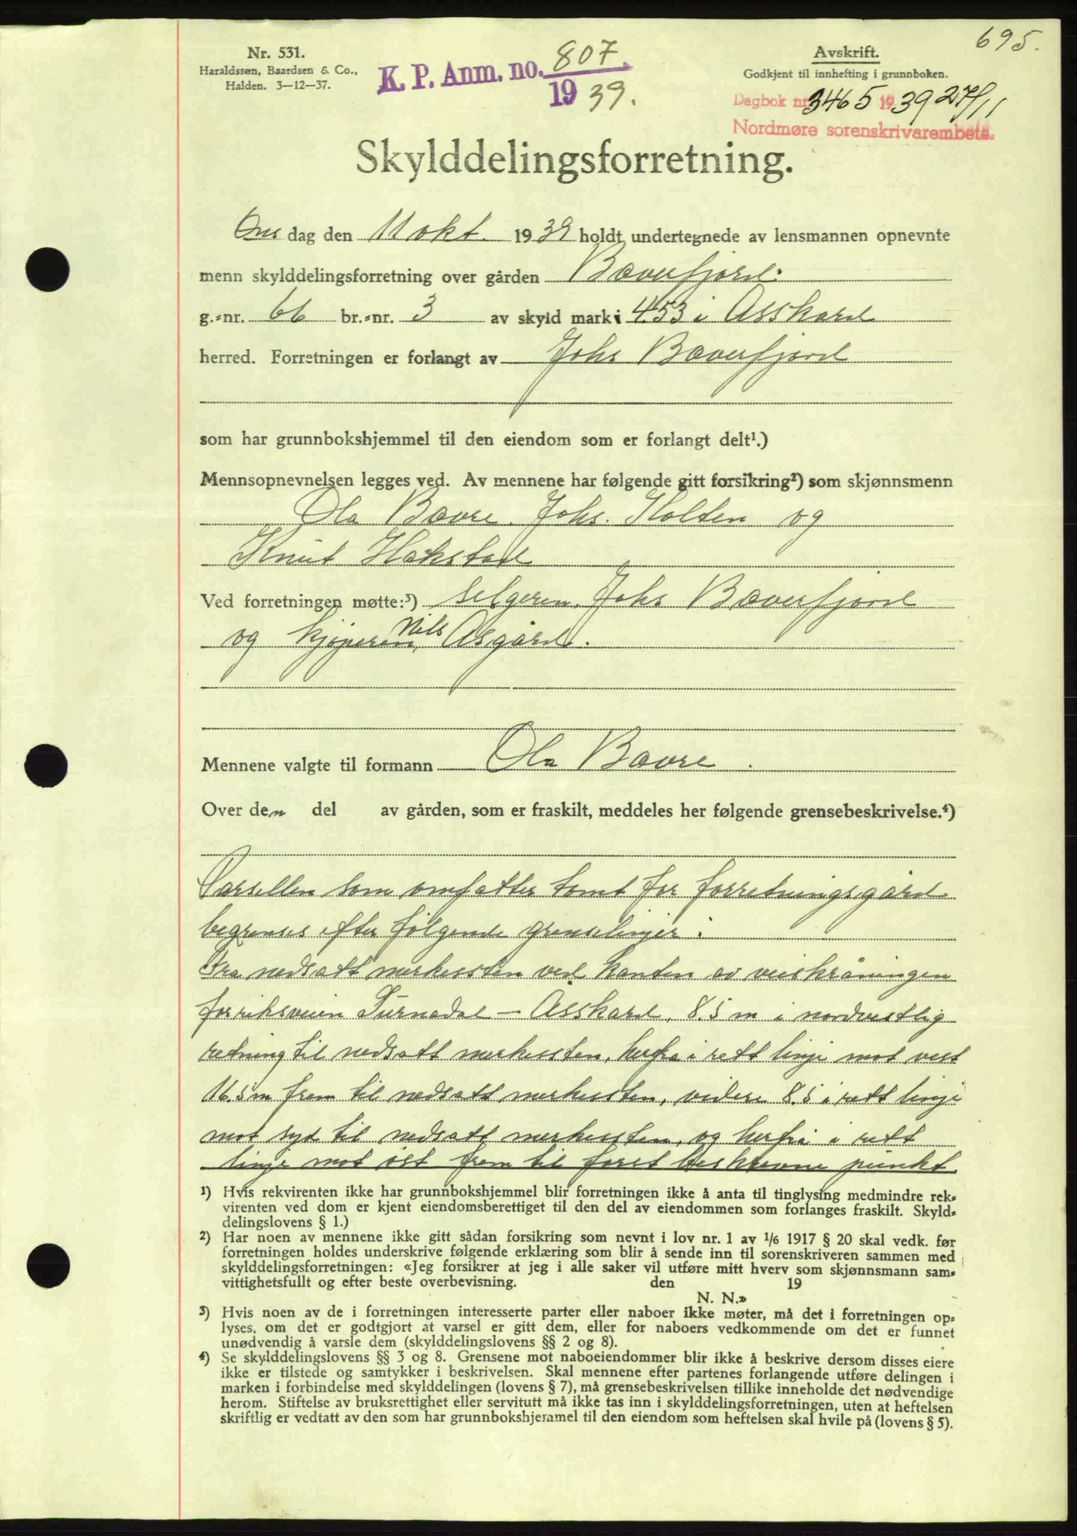 695.
Nr. 531.
Haraldssen, Baardsen & Co.,
Halden. 3—12—37.
K. P. Anm. no. 807
1939.
Avskrift.
Godkjent til innhefting i grunnboken.
Dagbok nr. 3465 1939 27/11
Nordmøre sorenskrivarembete.
Skylddelingsforretning.
Onsdag den 11 okt. 1939 holdt undertegnede av lensmannen opnevnte
menn skylddelingsforretning over gården Bæverfjord.
g.-nr. 66 br.-nr. 3 av skyld mark 4.53 i Asskard
herred. Forretningen er forlangt av Johs Bæverfjord
som har grunnbokshjemmel til den eiendom som er forlangt delt¹.)
Mennsopnevnelsen legges ved. Av mennene har følgende gitt forsikring²) som skjønnsmenn
Ola Bævre. Johs. Holten og
Knut Hakstad
Ved forretningen møtte:³) selgeren, Johs Bæverfjord
og kjøperen, Nils Asgård.
Mennene valgte til formann Ola Bævre.
Over den del av gården, som er fraskilt, meddeles her følgende grensebeskrivelse.⁴)
Parsellen som omfatter tomt for forretningsgård
begrenses efter følgende grenselinjer:
Fra nedsatt merkessten ved kanten av veiskråningen
for riksveien Surnadal — Asskard, 8.5 m i nordvestlig
retning til nedsatt merkessten, herfra i rett linje mot vest
16.5 m frem til nedsatt merkessten, videre 8.5 i rett linje
mot syd til nedsatt merkessten, og herfra i rett
linje mot øst frem til først beskrevne punkt.
¹) Hvis rekvirenten ikke har grunnbokshjemmel blir forretningen ikke å anta til tinglysing medmindre rek-
virenten ved dom er kjent eiendomsberettiget til den del av eiendommen som forlanges fraskilt. Skyld-
delingslovens § 1.)
²) Har noen av mennene ikke gitt sådan forsikring som nevnt i lov nr. 1 av 1/6 1917 § 20 skal vedk. før
forretningen holdes underskrive følgende erklæring som blir å sende inn til sorenskriveren sammen med
skylddelingsforretningen: «Jeg forsikrer at jeg i alle saker vil utføre mitt hverv som skjønnsmann sam-
vittighetsfullt og efter beste overbevisning. den 19
N. N.»
³) Hvis noen av de i forretningen interesserte parter eller naboer ikke møter, må det i forretningen op-
lyses, om det er godtgjort at varsel er gitt dem, eller for naboers vedkommende om det er funnet
unødvendig å varsle dem (skylddelingslovens §§ 2 og 8).
⁴) Se skylddelingslovens §§ 3 og 8. Grensene mot naboeiendommer blir ikke å beskrive dersom disses eiere
ikke er tilstede og samtykker i beskrivelsen. Skal mennene efter partenes forlangende utføre delingen i
marken i forbindelse med skylddelingen (lovens § 7), må grensebeskrivelsen tillike inneholde det nødvendige
herom. Stiftelse av bruksrettighet eller servitutt må ikke tas inn i skylddelingsforretningen, uten at heftelsen
skriftlig er vedtatt av den som har grunnbokshjemmel til den eiendom som heftelsen skal hvile på (lovens § 5).